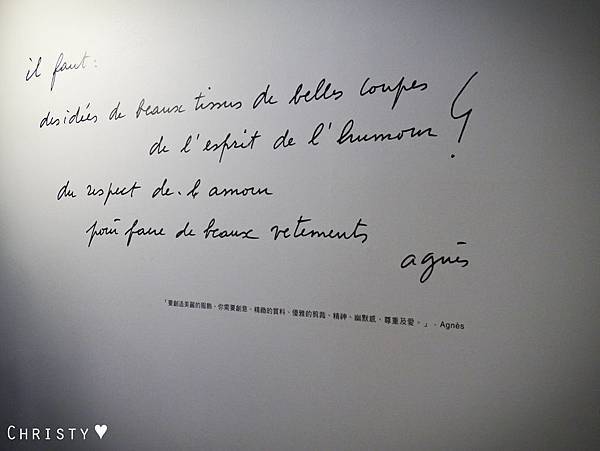 il faut:
des idées de beaux tissus de belles coupes
de l'esprit de l'humour !
du respect de l'amour
pour faire de beaux vetements
agnès
「要創造美麗的服飾，你需要創意、精緻的質料、優雅的剪裁、精神、幽默感、尊重及愛。」- Agnès
CHRISTY♥